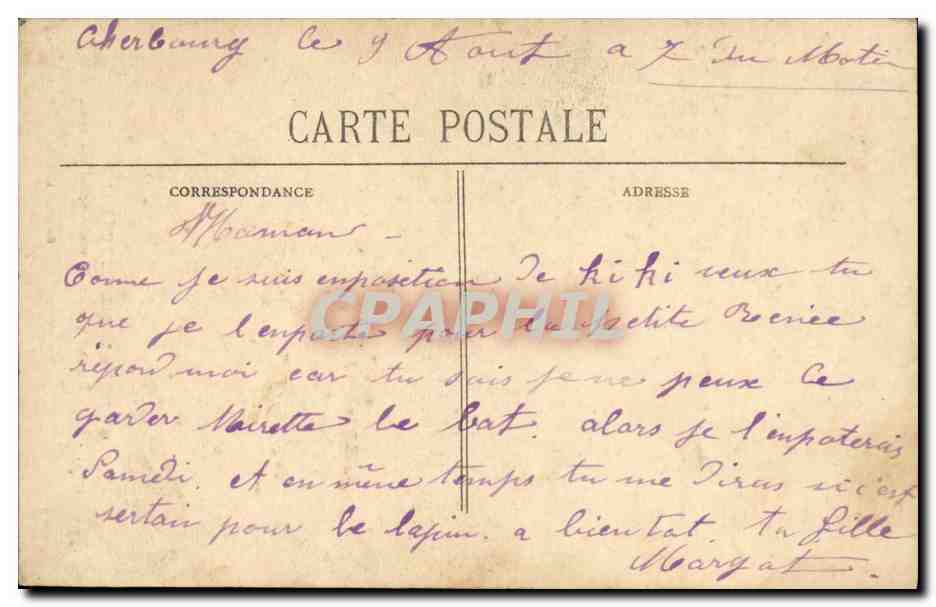 Cherbourg Le 9 Aout a 7 du Matin
CARTE POSTALE
CORRESPONDANCE
ADRESSE
Maman
Come je suis enposition de kiki veux tu
que je l'enporte pour la petite Renée
répond moi car tu sais je ne peux le
garder Mirette le bat. alors je l'enpoterais
Samedi. et en même temps tu me diras si c'est
sertain pour le lapin. a bientot. ta fille
Margot.
CPAPHIL